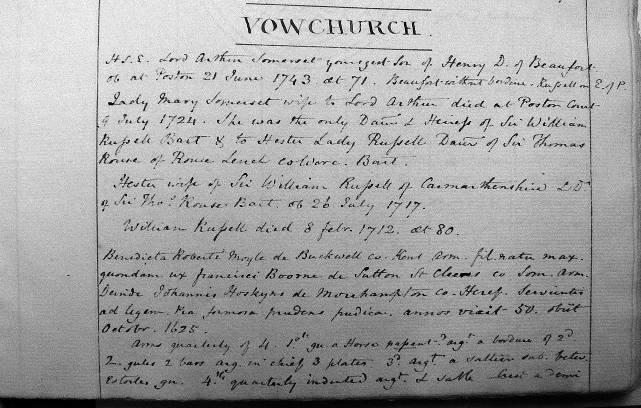 VOWCHURCH.
H.S.E. Lord Arthur Somerset youngest Son of Henry D. of Beaufort
ob at Poston 21 June 1743 æt 71. Beaufort without bordure. Russell on E. of P.
Lady Mary Somerset wife to Lord Arthur died at Poston Court
9 July 1724. She was the only Daur & Heiress of Sir William
Russell Bart & to Hester Lady Russell Daur of Sir Thomas
Rouse of Rouse Lench co Worc. Bart.
Hester wife of Sir William Russell of Carmarthenshire & Dr
of Sir Thos Rouse Bart. ob 26 July 1717.
William Russell died 8 febr. 1712. æt 80.
Benedicta Roberti Moyle de Buckwell co. Kent Arm. fil. natu max.
quondam ux francisci Boorne de Sutton St Cleeres co Som. Arm.
Deinde Johannis Hoskyns de Morehampton co. Heref. Servientis
ad legem. Pia, formosa prudens pudica. annos vixit 50. obiit
Octobr. 1625.
Arms quarterly of 4. 1st gu a Horse argt a bordure of 2d
2. gules 2 bars arg. in chief 3 plates 3d argt. a saltier sab. betw.
Estoiles gu. 4th quarterly indented argt. & sable Crest a demi